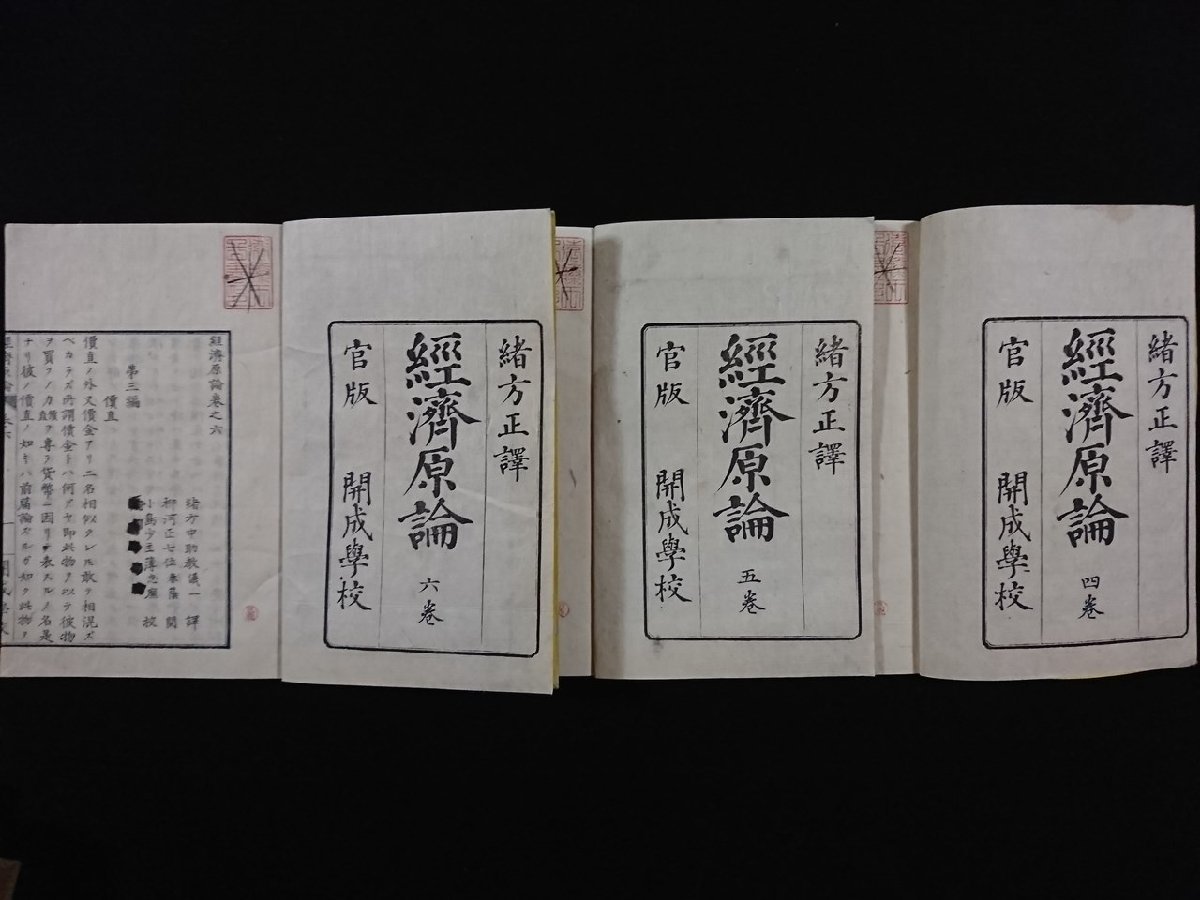 緒方正譯
經濟原論
四卷
官版 開成學校
緒方正譯
經濟原論
五卷
官版 開成學校
緒方正譯
經濟原論
六卷
官版 開成學校
經濟原論卷之六
緒方中助教儀一 譯
第三編
價直
價直ノ外又價金アリ二名相似タレ𪜈敢テ相混ズ
ベカラズ所謂價金トハ何ゾヤ即此物ヲ以テ彼物
ヲ買フノ力ヲ專ラ貨幣ニ因リテ表スルノ名是
ナリ彼ノ價直ノ如キハ前篇論ズルガ如ク此物ヲ